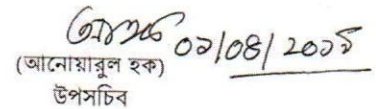 ০১/০৪/২০১৯
(আনোয়ারুল হক)
উপসচিব